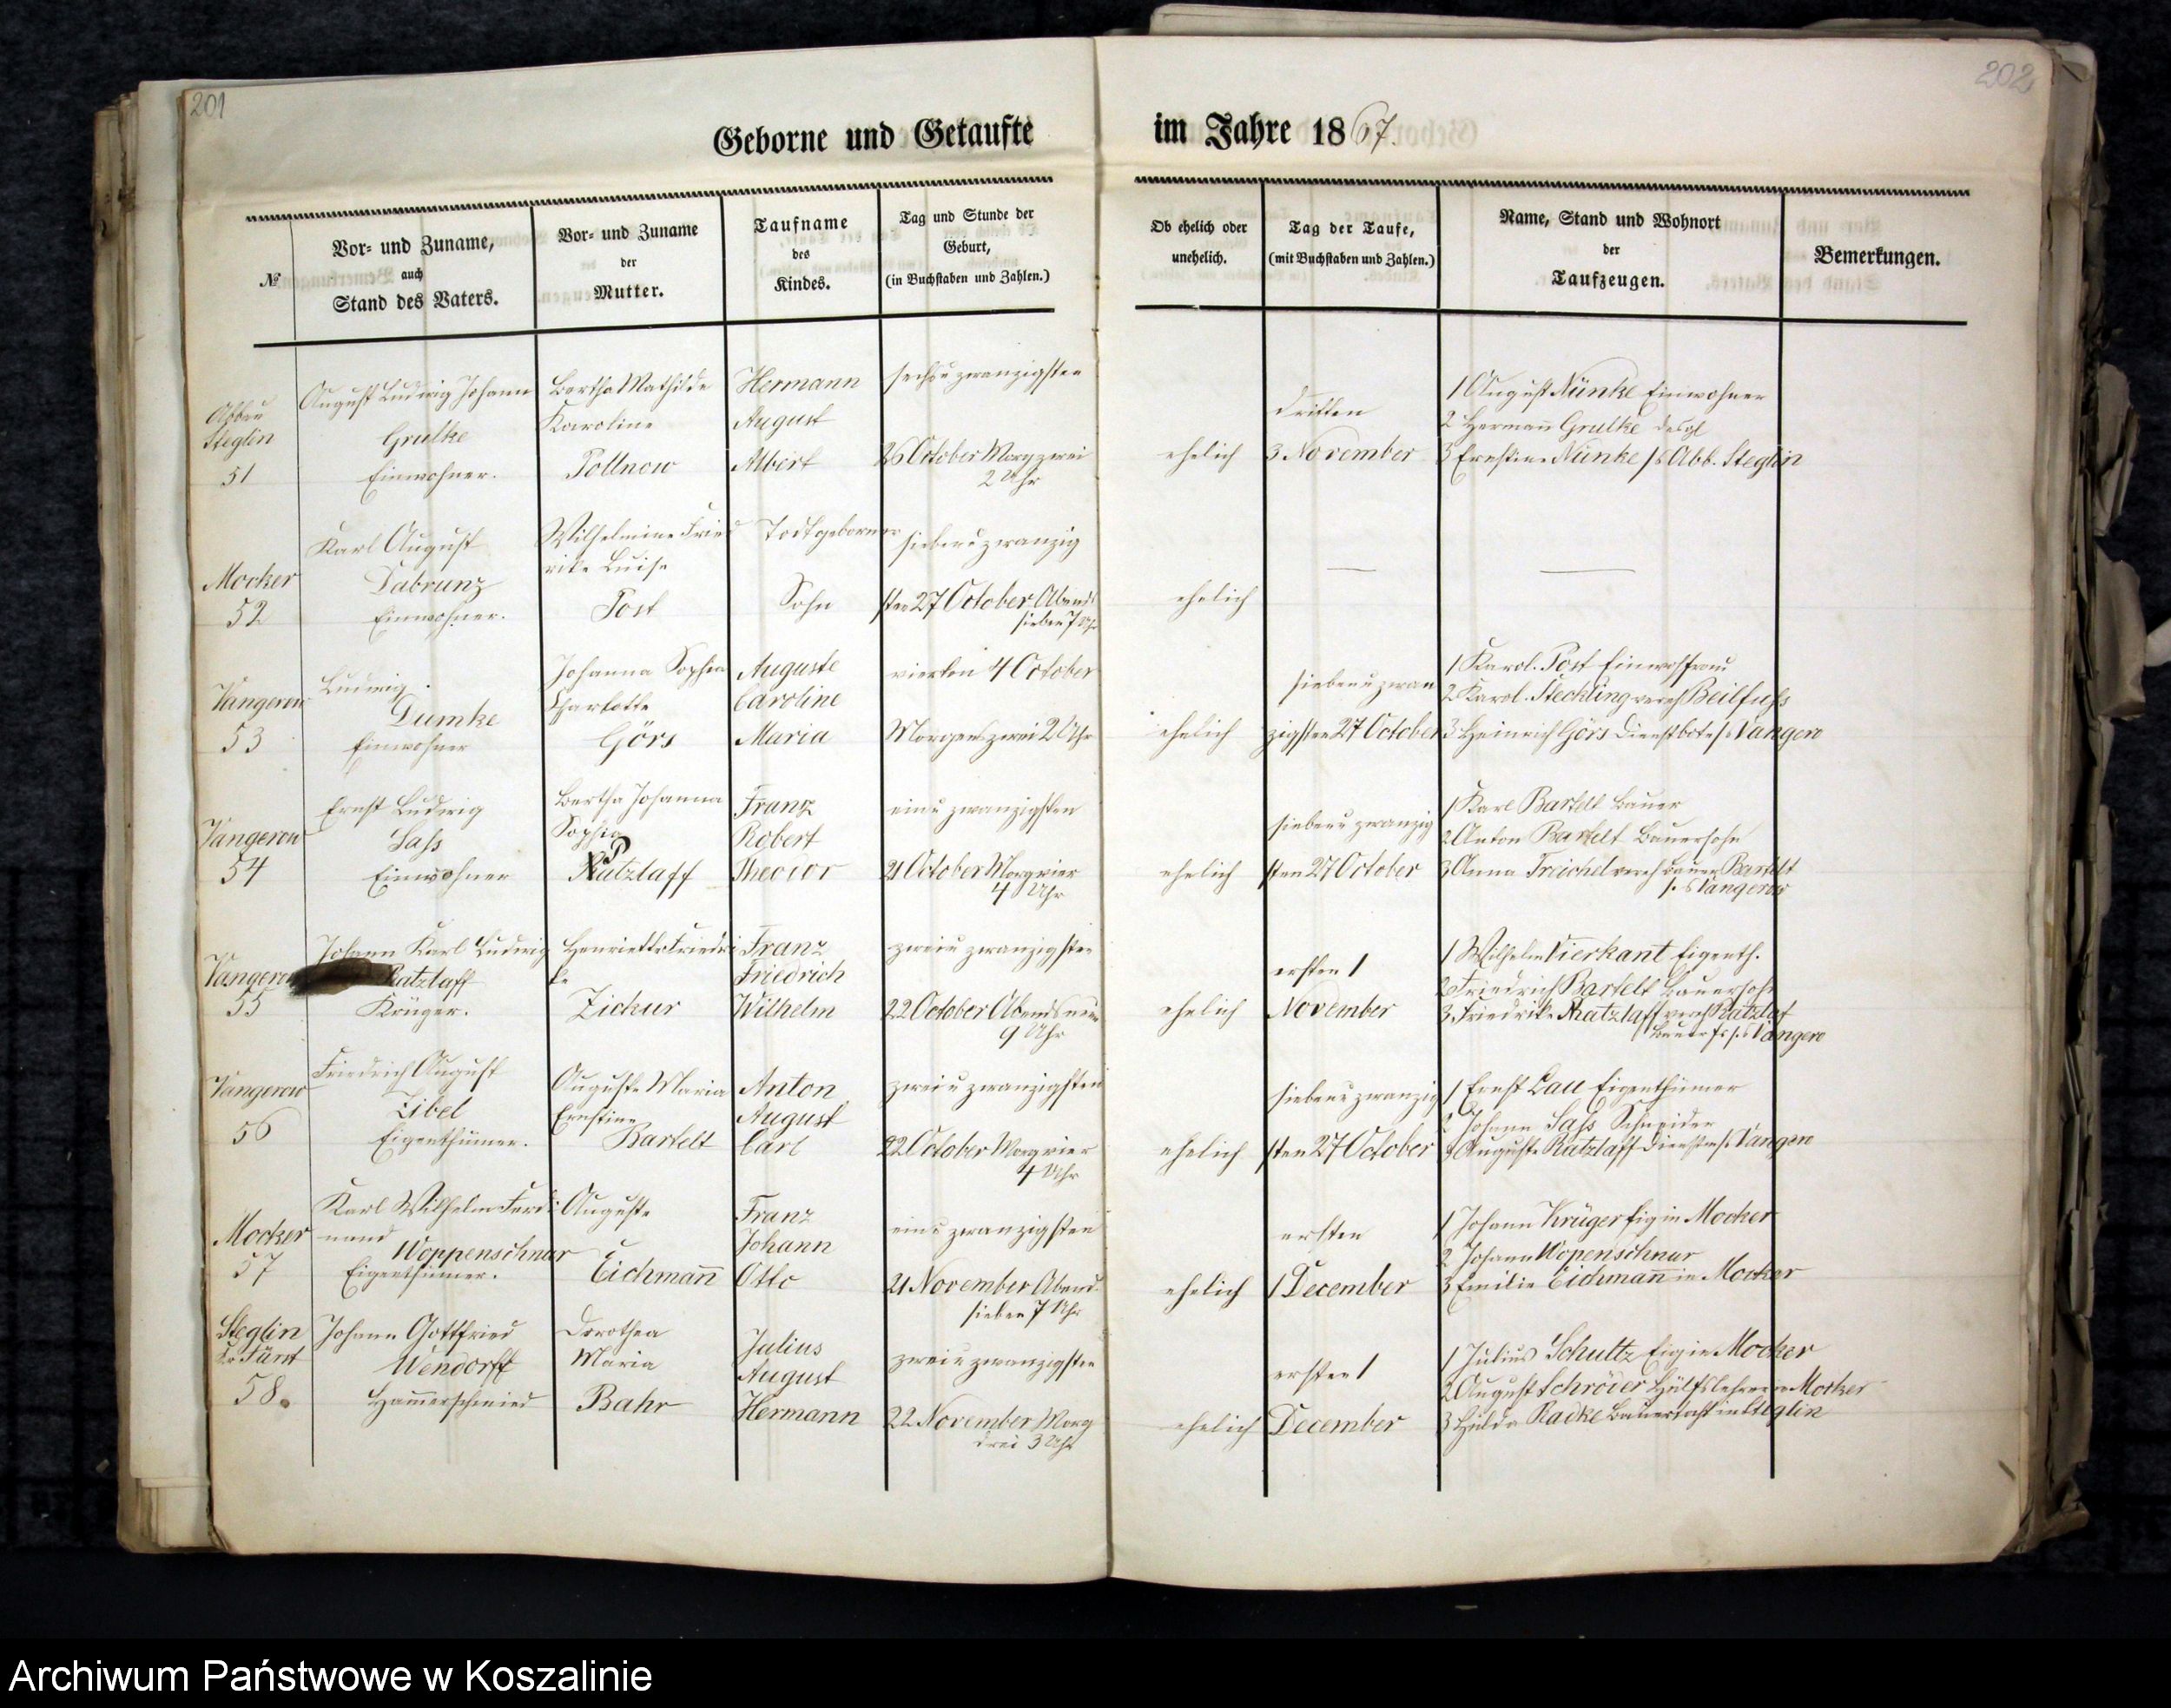 201
202
Geborne und Getaufte im Jahre 1867.
№
Vor- und Zuname,
auch
Stand des Vaters.
Vor- und Zuname
der
Mutter.
Taufname
des
Kindes.
Tag und Stunde der
Geburt,
(in Buchstaben und Zahlen.)
Ob ehelich oder
unehelich.
Tag der Taufe,
(mit Buchstaben und Zahlen.)
Name, Stand und Wohnort
der
Taufzeugen.
Bemerkungen.
Abbau
Steglin
51
August Ludwig Johann
Grulke
Einwohner.
Bertha Mathilde
Karoline
Pollnow
Hermann
August
Albert
sechsu zwanzigsten
26 October Morg zwei
2 Uhr
ehelich
dritten
3 November
1 August Nünke Einwohner
2 Hermann Grulke desgl
3 Ernstine Nünke Abb. Steglin
Mocker
52
Karl August
Dabrunz
Einwohner.
Wilhelmine Fried
rike Luise
Post
Todtgeborner
Sohn
siebenu zwanzig
sten 27 October Abends
sieben 7 Uhr
ehelich
Vangerow
53
Ludwig
Dumke
Einwohner
Johanna Sophia
Charlotte
Görs
Auguste
Caroline
Maria
vierten 4 October
Morgens zwei 2 Uhr
ehelich
siebenu zwan
zigsten 27 October
1 Karol. Post Einwohfrau
2 Karol. Steckling vereh Beilfuss
3 Heinrich Görs Dienstbote Vangero
Vangerow
54
Ernst Ludwig
Sass
Einwohner
Bertha Johanna
Sophia
Ratzlaff
Franz
Robert
Theodor
einu zwanzigsten
21 October Morg vier
4 Uhr
ehelich
siebenu zwanzig
sten 27 October
1 Karl Bartelt Bauer
2 Anton Bartelt Bauersohn
3 Anna Treichel vereh Bauer Bartelt
Vangerow
Vangerow
55
Johann Karl Ludwig
Ratzlaff
Krüger.
Henriette Friedri
ke
Zickur
Franz
Friedrich
Wilhelm
zweiu zwanzigsten
22 October Abends neun
9 Uhr
ehelich
ersten 1
November
1 Wilhelm Vierkant Eigenth.
2 Friedrich Bartelt Bauersohn
3 Friedrike Ratzlaff vereh Ratzlaf
Vangero
Vangerow
56
Friedrich August
Zibel
Eigenthümer.
Auguste Maria
Ernstine
Bartelt
Anton
August
Carl
zweiu zwanzigsten
22 October Morg vier
4 Uhr
ehelich
siebenu zwanzig
sten 27 October
1 Ernst Lau Eigenthümer
2 Johann Sass Schneider
3 Auguste Ratzlaff Vangero
Mocker
57
Karl Wilhelm Ferdi
nand
Woppenschnur
Eigenthümer.
Auguste
Eichmann
Franz
Johann
Otto
einu zwanzigsten
21 November Abend.
sieben 7 Uhr
ehelich
ersten
1 December
1 Johann Krüger Eig in Mocker
2 Johann Wopenschnur
3 Emilie Eichmann in Mocker
Steglin
58.
Johann Gottfried
Wendorff
Hammerschmied
Dorothea
Maria
Bahr
Julius
August
Hermann
zweiu zwanzigsten
22 November Morg
drei 3 Uhr
ehelich
ersten 1
December
1 Julius Schultz Eig in Mocker
2 August Schröder Hülfslehrer in Mocker
3 Hulda Radke in Steglin
Archiwum Państwowe w Koszalinie